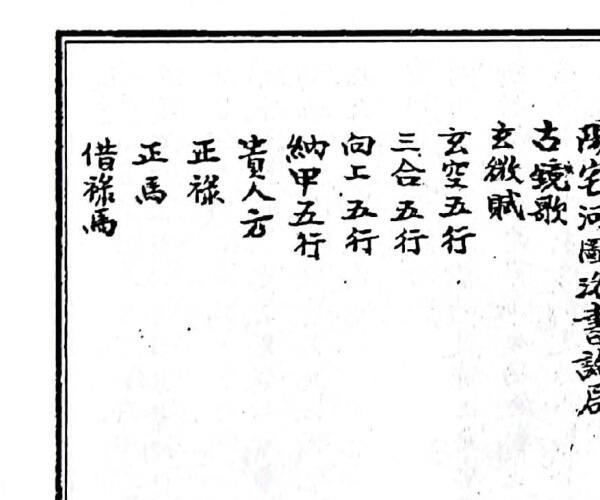 陽宅河圖洛書論局
古鏡歌
玄微賦
玄空五行
三合五行
向上五行
納甲五行
貴人方
正祿
正馬
借祿馬